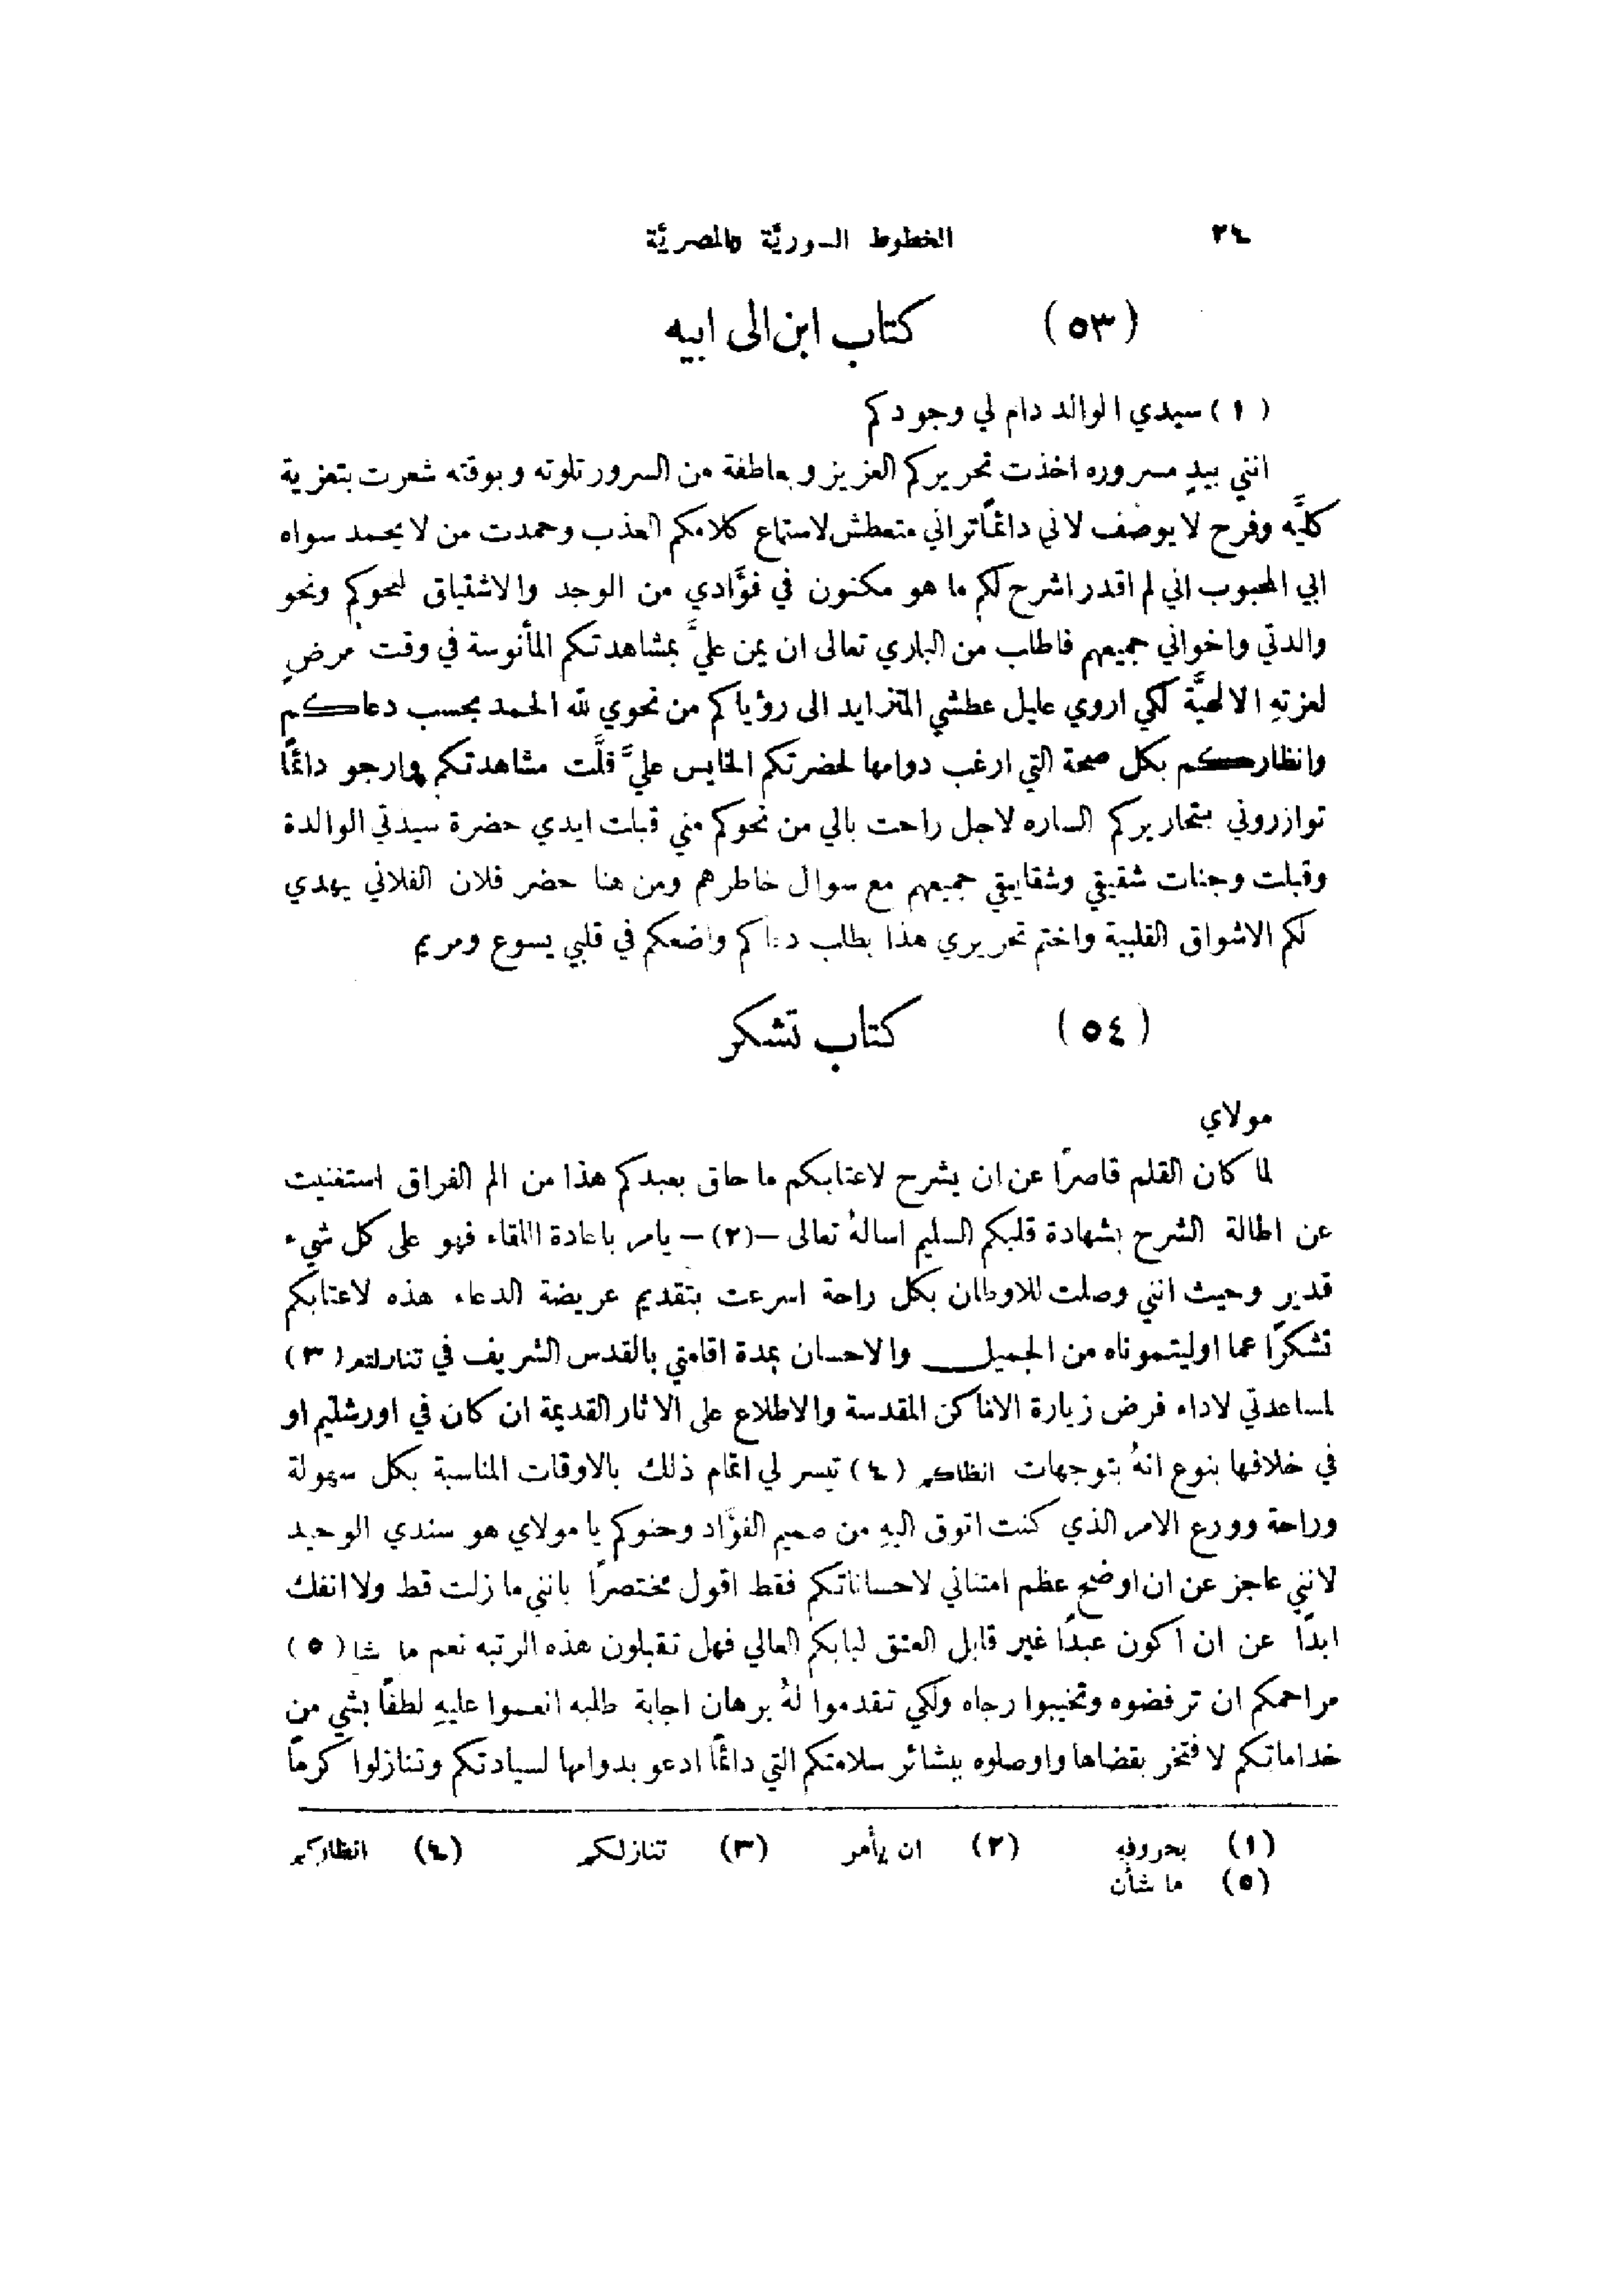 ٢٤ الخطوط السوريَّة والمصريَّة
(٥٣) كتاب ابن الى ابيه
(١) سيدي الوالد دام لي وجودكم
انني بيدٍ مسروره اخذت تحريركم العزيز وبعاطفة من السرور تلوته وبوقته شعرت بتعزية
كليَّه وفرح لا يوصف لاني دائمًا تراني متعطش لاستماع كلامكم العذب وحمدت من لا يحمد سواه
ابي المحبوب اني لم اقدر اشرح لكم ما هو مكنون في فؤَادي من الوجد والاشتياق لنحوكم ونحو
والدتي واخواني جميعهم فاطلب من الباري تعالى ان يمن عليَّ بمشاهدتكم المأنوسة في وقت مرضٍ
لعزتهِ الالهيَّة لكي اروي عليل عطشي المتزايد الى رؤياكم من نحوي لله الحمد بحسب دعاكم
وانظاركم بكل صحة التي ارغب دوامها لحضرتكم الخايس عليَّ قلَّت مشاهدتكم وارجو دائمًا
توازروني بتحاريركم الساره لاجل راحت بالي من نحوكم مني قبلت ايدي حضرة سيدتي الوالدة
وقبلت وجنات شقيقي وشقايقي جميعهم مع سوال خاطرهم ومن هنا حضر فلان الفلاني يهدي
لكم الاشواق القلبية واختم تحريري هذا بطلب دعاكم واضعكم في قلبي يسوع ومريم
(٥٤) كتاب تشكر
مولاي
لما كان القلم قاصرًا عن ان يشرح لاعتابكم ما حاق بعبدكم هذا من الم الفراق استغنيت
عن اطالة الشرح بشهادة قلبكم السليم اسالهُ تعالى –(٢)– يامر باعادة اللقاء فهو على كل شيء
قدير وحيث انني وصلت للاوطان بكل راحة اسرعت بتقديم عريضة الدعاء هذه لاعتابكم
تشكرًا عما اوليتموناه من الجميل والاحسان بمدة اقامتي بالقدس الشريف في تنازلتم (٣)
لمساعدتي لاداء فرض زيارة الاماكن المقدسة والاطلاع على الاثار القديمة ان كان في اورشليم او
في خلافها بنوع انهُ بتوجهات انظاكم (٤) تيسر لي اتمام ذلك بالاوقات المناسبة بكل سهولة
وراحة وورع الامر الذي كنت اتوق اليهِ من صميم الفؤَاد وحنوكم يا مولاي هو سندي الوحيد
لانني عاجز عن ان اوضح عظم امتناني لاحساناتكم فقط اقول مختصرًا بانني ما زلت قط ولا انفك
ابدًا عن ان اكون عبدًا غير قابل العتق لبابكم العالي فهل تقبلون هذه الرتبه نعم ما شا (٥)
مراحمكم ان ترفضوه وتخيبوا رجاه ولكي تقدموا لهُ برهان اجابة طلبه انعموا عليهِ لطفًا بشي من
خداماتكم لافتخر بقضاها واوصلوه ببشائر سلامتكم التي دائمًا ادعو بدوامها لسيادتكم وتنازلوا كرمًا
(١) بحروفه (٢) ان يأمر (٣) تنازلكم (٤) انظاركم
(٥) ما شأن